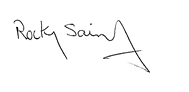 Rocky Saint